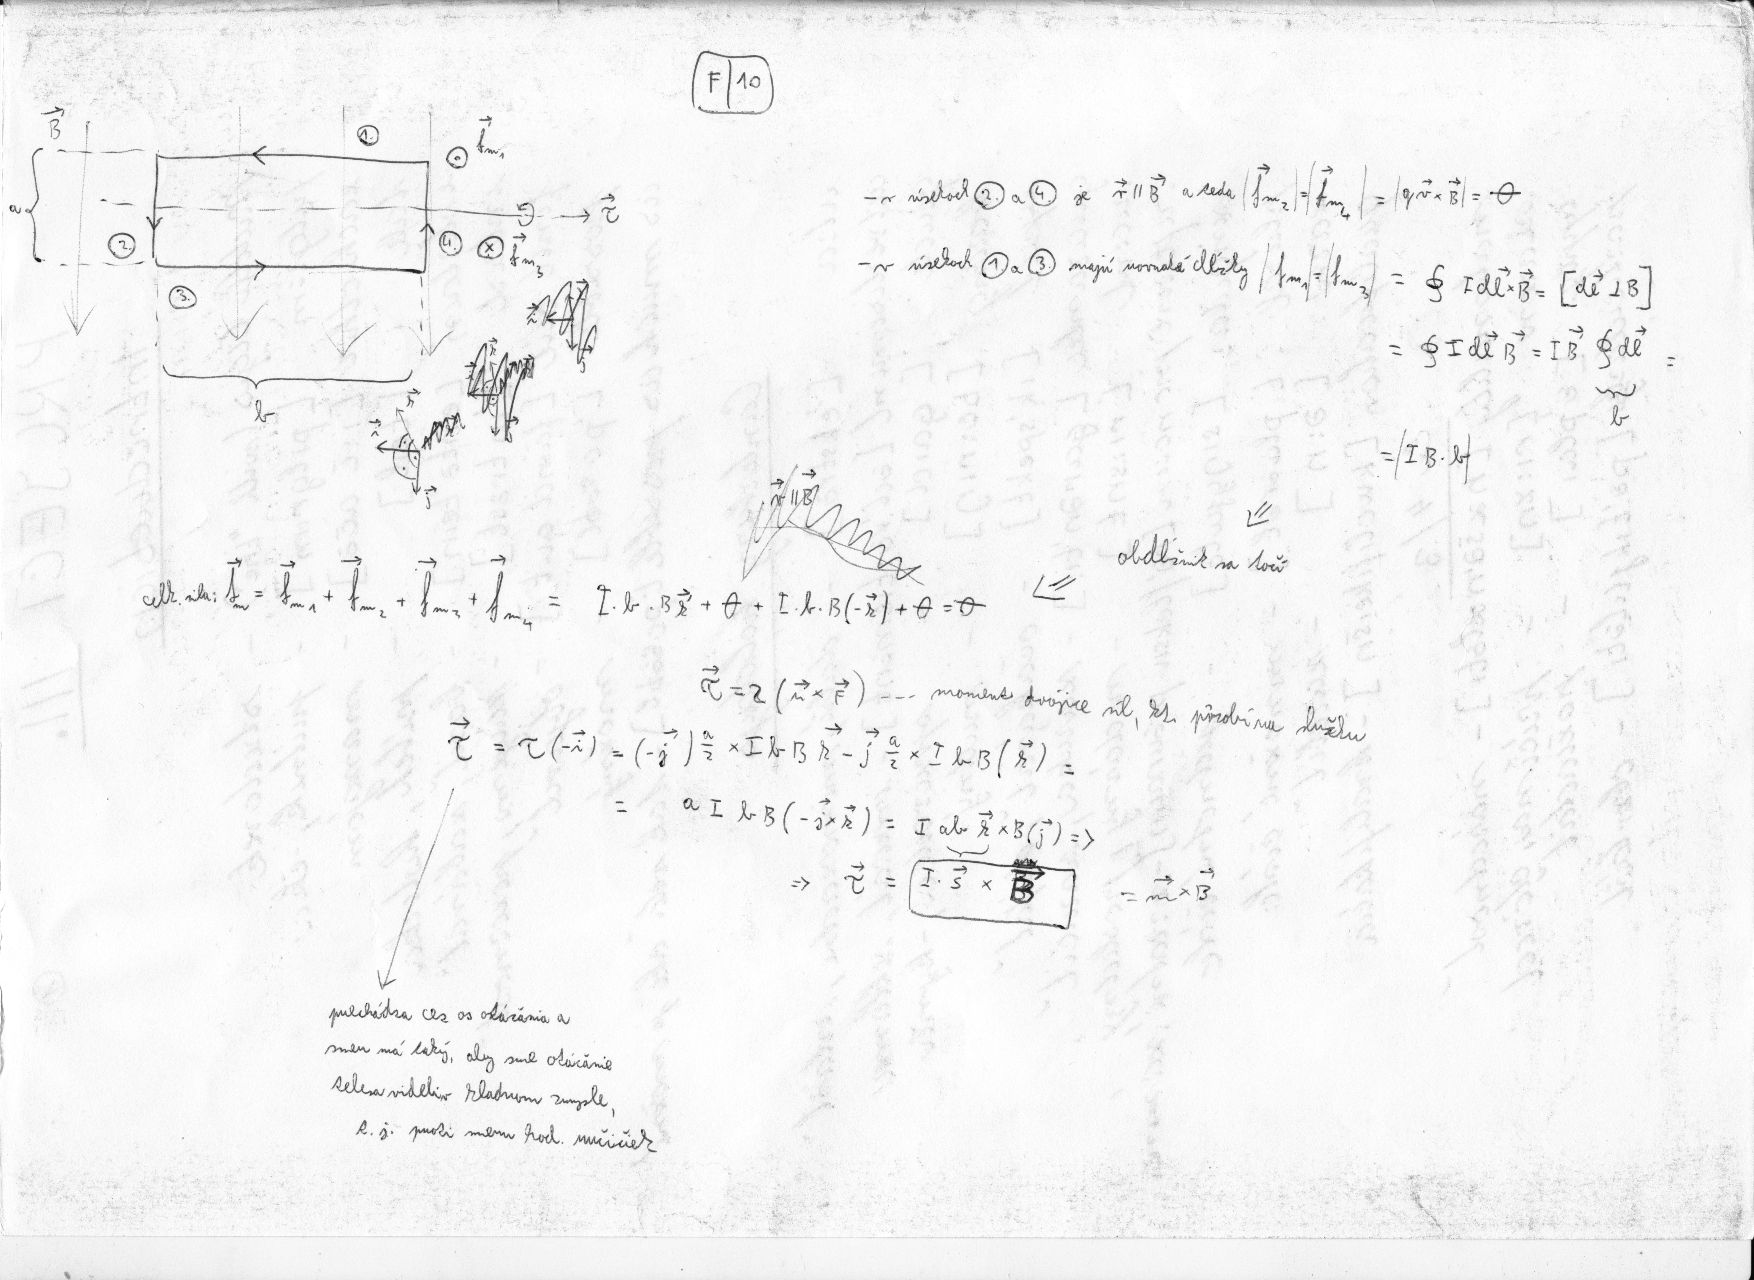 F | 10
B⃗
①
f⃗m₁
a
τ⃗
②
④ ⊗ f⃗m₃
③
b
k⃗
i⃗
j⃗
- v úsekoch ② a ④ je v⃗ ∥ B⃗ a teda |f⃗m₂| = |f⃗m₄| = |q v⃗ × B⃗| = 0
- v úsekoch ① a ③ majú rovnaké dĺžky |fm₁| = |fm₃| = ∮ I dl⃗ × B⃗ = [dl⃗ ⊥ B]
= ∮ I dl⃗ B⃗ = I B⃗ ∮ dl⃗ =
b
= |I B · b|
⇙
obdĺžnik sa točí
⇙
v⃗ ∥ B⃗
celk. sila: f⃗m = f⃗m₁ + f⃗m₂ + f⃗m₃ + f⃗m₄ = I · b · B k⃗ + 0 + I · b · B (-k⃗) + 0 = 0
τ⃗ = 2 (r⃗ × F⃗) --- moment dvojice síl, kt. pôsobí na slučku
τ⃗ = τ (-i⃗) = (-j⃗) a/2 × I b B k⃗ - j⃗ a/2 × I b B (k⃗) =
= a I b B (-j⃗ × k⃗) = I ab k⃗ × B (j⃗) =>
=> τ⃗ = I · S⃗ × B⃗ = m⃗ × B⃗
prechádza cez os otáčania a
smer má taký, aby sme otáčanie
telesa videli v kladnom zmysle,
t. j. proti smeru hod. ručičiek